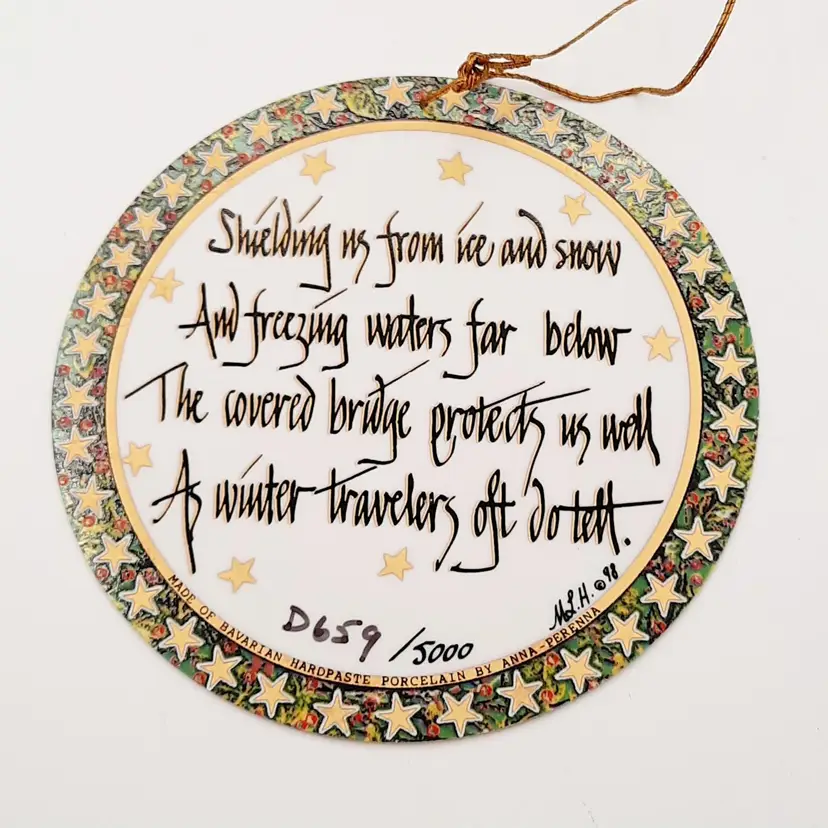 Shielding us from ice and snow
And freezing waters far below
The covered bridge protects us well
As winter travelers oft do tell.
M.L.H. © 98
D659/5000
MADE OF BAVARIAN HARDPASTE PORCELAIN BY ANNA-PERENNA